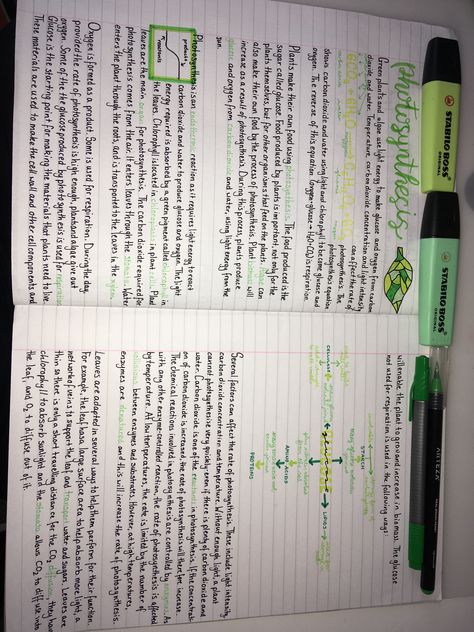 photosynthesis
Green plants and algae use light energy to make glucose and oxygen from carbon
dioxide and water. Temperature, carbon dioxide concentration and light intensity
can affect the rate of
photosynthesis. The
photosynthesis equation
shows carbon dioxide and water using light and chlorophyll to become glucose and
oxygen. The reverse of this equation (oxygen + glucose → H₂O + CO₂) is respiration.
Plants make their own food using photosynthesis. The food produced is the
sugar called glucose. Food produced by plants is important, not only for the
plants themselves, but for other organisms that feed on the plants. Algae can
also make their own food by the process of photosynthesis. Plant biomass will
increase as a result of photosynthesis. During this process, plants produce
glucose and oxygen from carbon dioxide and water, using light energy from the
sun.
Photosynthesis is an endothermic reaction as it requires light energy to react
carbon dioxide and water to produce glucose and oxygen. The light
energy required is absorbed by a green pigment called chlorophyll in
the leaves. Chlorophyll is located in chloroplasts in plant cells. Plant
leaves are the main organ for photosynthesis. The carbon dioxide required for
photosynthesis comes from the air. It enters leaves through the stomata. Water
enters the plant through the roots, and is transported to the leaves in the xylem.
reactants
products
Oxygen is formed as a product. Some is used for respiration. During the day
provided the rate of photosynthesis is high enough, plants and algae give out
oxygen. Some of the glucose produced by photosynthesis is used for respiration
Glucose is the starting point for making the materials that plants need to live.
These materials are used to make the cell wall and other cell components and
will enable the plant to grow and increase in biomass. The glucose
not used for respiration is used in the following ways:
STARCH
CELLULOSE
glucose
FATS
AMINO ACIDS
PROTEINS
Several factors can affect the rate of photosynthesis. These include light intensity,
carbon dioxide concentration and temperature. Without enough light, a plant
cannot photosynthesise very quickly- even if there is plenty of carbon dioxide and
water. Carbon dioxide is one of the reactants in photosynthesis. If the concentrati
on of carbon dioxide is increased, the rate of photosynthesis will therefore increase.
The chemical reactions involved in photosynthesis are controlled by enzymes. As
with any other enzyme-controlled reaction, the rate of photosynthesis is affected
by temperature. At low temperatures, the rate is limited by the number of
collisions between enzymes and substrates. However, at high temperatures,
enzymes are denatured and this will increase the rate of photosynthesis.
Leaves are adapted in several ways to help them perform for their function.
For example, the leaf has a large surface area to help absorb more light, a
network of veins to support the leaf and transport water and sugars. Leaves are
thin so there is only a short travelling distance for the CO₂ diffusion, they have
chlorophyll to absorb sunlight and the stomata allows CO₂ to diffuse into
the leaf, and O₂ to diffuse out of it.
STABILO BOSS
ORIGINAL
STABILO BOSS
ORIGINAL